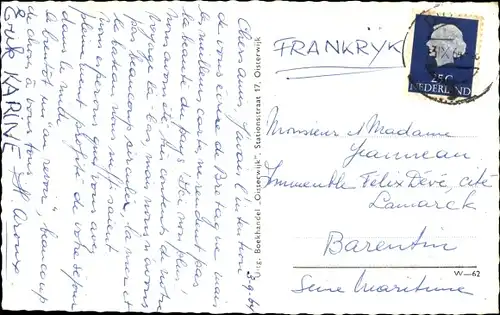 3-9-64
Chers amis, j'avais l'intention
de vous écrire de Bretagne mais
les meilleurs cartes ne rendent pas
la beauté du pays! Ici non plus,
nous avons été très contents de notre
voyage là-bas, mais nous n'avons
pas beaucoup circuler, la mer et
le bateau nous suffisaient
nous espérons que vous avez
pleinement profité de votre séjour
dans le midi
À bientôt un "au revoir", beaucoup
de choses à vous tous
Erik KARINE
Uitg. Boekhandel „Oisterwijk", Stationsstraat 17, Oisterwijk
FRANKRYK
25c
NEDERLAND
Monsieur & Madame
Jeanneau
Immeuble Félix Dévé, cité
Lamarck
Barentin
W—62
Seine Maritime